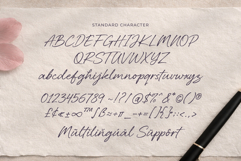 STANDARD CHARACTER
ABCDEFGHIJKLMNOP
QRSTUVWXYZ
abcdefghijklmnopqrstuvwxyz
0123456789 -!?|@$%^&*©()®
Multilingual Support